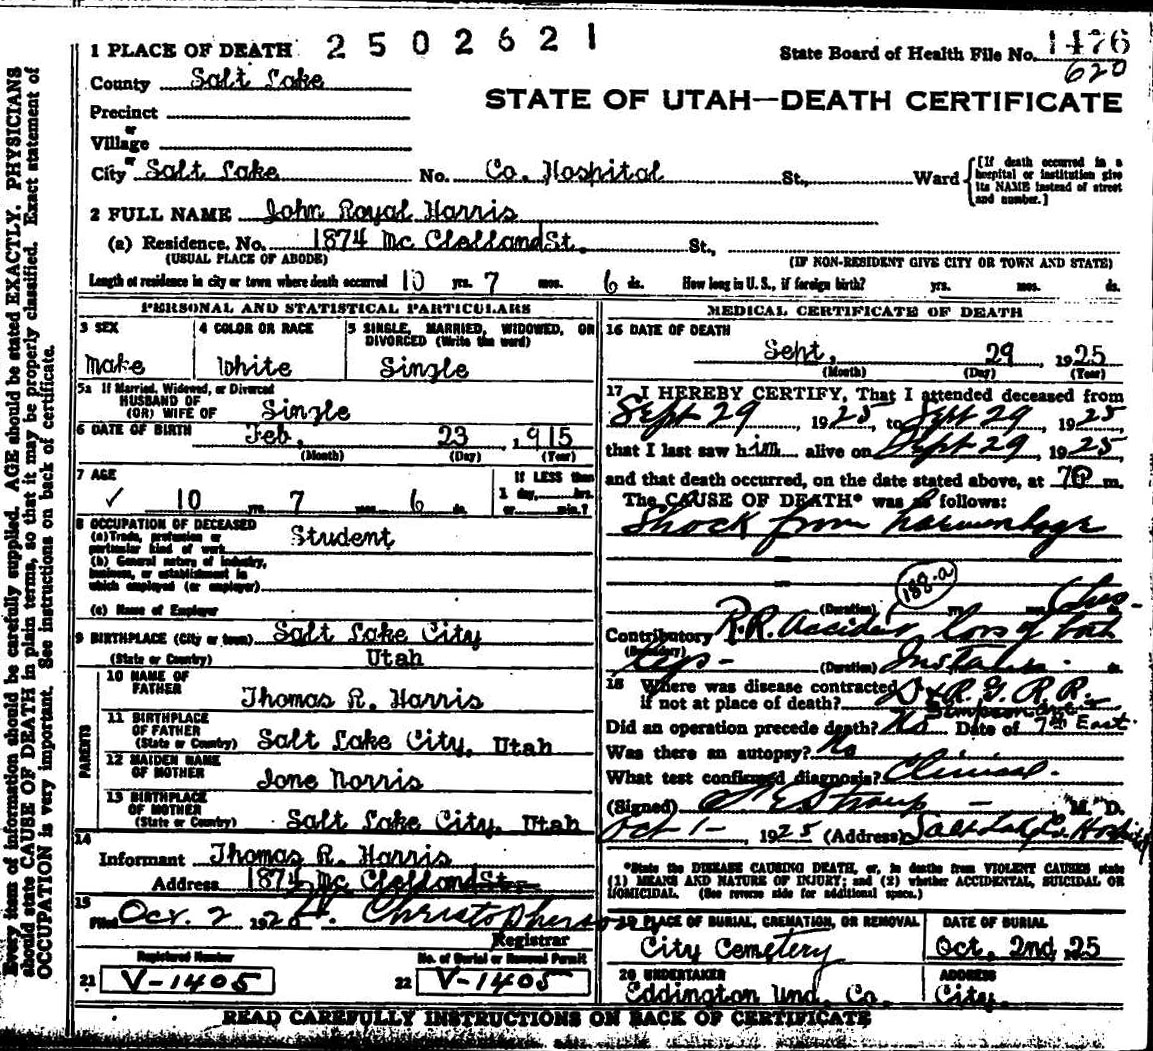 1 PLACE OF DEATH 2502621
State Board of Health File No. 1476
620
County Salt Lake
STATE OF UTAH—DEATH CERTIFICATE
Precinct
or
Village
or
City Salt Lake No. Co. Hospital St., Ward
[If death occurred in a hospital or institution give its NAME instead of street and number.]
2 FULL NAME John Royal Harris
(a) Residence, No. 1874 Mc Clelland St. St.,
(USUAL PLACE OF ABODE) (IF NON-RESIDENT GIVE CITY OR TOWN AND STATE)
Length of residence in city or town where death occurred 10 yrs. 7 mos. 6 ds. How long in U. S., if foreign birth? yrs. mos. ds.
PERSONAL AND STATISTICAL PARTICULARS
3 SEX 4 COLOR OR RACE 5 SINGLE, MARRIED, WIDOWED, OR
DIVORCED (Write the word)
Make White Single
5a If Married, Widowed, or Divorced
HUSBAND OF
(OR) WIFE OF Single
6 DATE OF BIRTH Feb. 23, 1915
(Month) (Day) (Year)
7 AGE If LESS than
1 day, hrs.
✓ 10 yrs. 7 mos. 6 ds. or min.?
8 OCCUPATION OF DECEASED
(a) Trade, profession or
particular kind of work Student
(b) General nature of industry,
business, or establishment in
which employed (or employer)
(c) Name of Employer
9 BIRTHPLACE (City or town) Salt Lake City
(State or Country) Utah
PARENTS
10 NAME OF
FATHER Thomas R. Harris
11 BIRTHPLACE
OF FATHER
(State or Country) Salt Lake City, Utah
12 MAIDEN NAME
OF MOTHER Ione Norris
13 BIRTHPLACE
OF MOTHER
(State or Country) Salt Lake City, Utah
14
Informant Thomas R. Harris
Address 1874 Mc Clelland St.
15
Filed Oct. 2 192 H. Christopherson
Registrar
Registered Number No. of Burial or Removal Permit
21 V-1405 22 V-1405
MEDICAL CERTIFICATE OF DEATH
16 DATE OF DEATH
Sept. 29, 1925
(Month) (Day) (Year)
17 I HEREBY CERTIFY, That I attended deceased from
Sept 29, 1925, to Sept 29, 1925,
that I last saw him alive on Sept 29, 1925,
and that death occurred, on the date stated above, at 7P m.
The CAUSE OF DEATH* was as follows:
Shock from haemorrhage
188-a
(Duration) yrs. mos. ds.
Contributory R.R. Accident loss of both
(Secondary)
legs - (Duration) ds.
18 Where was disease contracted D & R. G. R.R.
if not at place of death? Simpson Ave
Did an operation precede death? No Date of 7th East.
Was there an autopsy? No
What test confirmed diagnosis? Clinical.
(Signed) M. D.
Oct 1- 1925 (Address) Salt Lake Co. Hospital
*State the DISEASE CAUSING DEATH, or, in deaths from VIOLENT CAUSES state
(1) MEANS AND NATURE OF INJURY; and (2) whether ACCIDENTAL, SUICIDAL OR
HOMICIDAL. (See reverse side for additional space.)
19 PLACE OF BURIAL, CREMATION, OR REMOVAL DATE OF BURIAL
City Cemetery Oct. 2nd, 25
20 UNDERTAKER ADDRESS
Eddington Und. Co. City.
READ CAREFULLY INSTRUCTIONS ON BACK OF CERTIFICATE
Every item of information should be carefully supplied. AGE should be stated EXACTLY. PHYSICIANS
should state CAUSE OF DEATH in plain terms, so that it may be properly classified. Exact statement of
OCCUPATION is very important. See instructions on back of certificate.